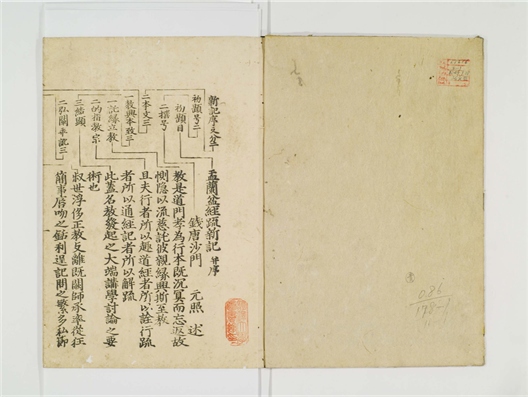 盂蘭盆經疏新記 并序
錢唐沙門 元照 述
教是道門孝為行本既沉冥而忘返故
惻隐以流慈託彼親緣興斯至教
且夫行者所以趣道經者所以詮行疏
者所以通經記者所以解疏
此蓋名教發起之大端講學討論之要
術也
叙世淳侈正教支離既闕師承率從狂
簡事唇吻之 利逞記問之繁多私
新記序文分二
初題号二
初題目
二撰号
二本文三
一教興本致二
一託緣立教
二的指教宗
三結顯
二弘闡 記三
086
178-1